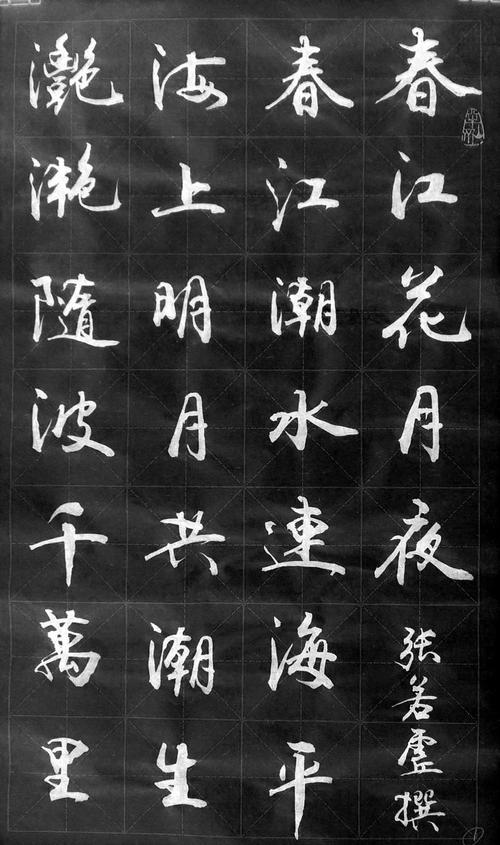 春江花月夜 張若虛撰
春江潮水連海平
海上明月共潮生
灩灩隨波千萬里